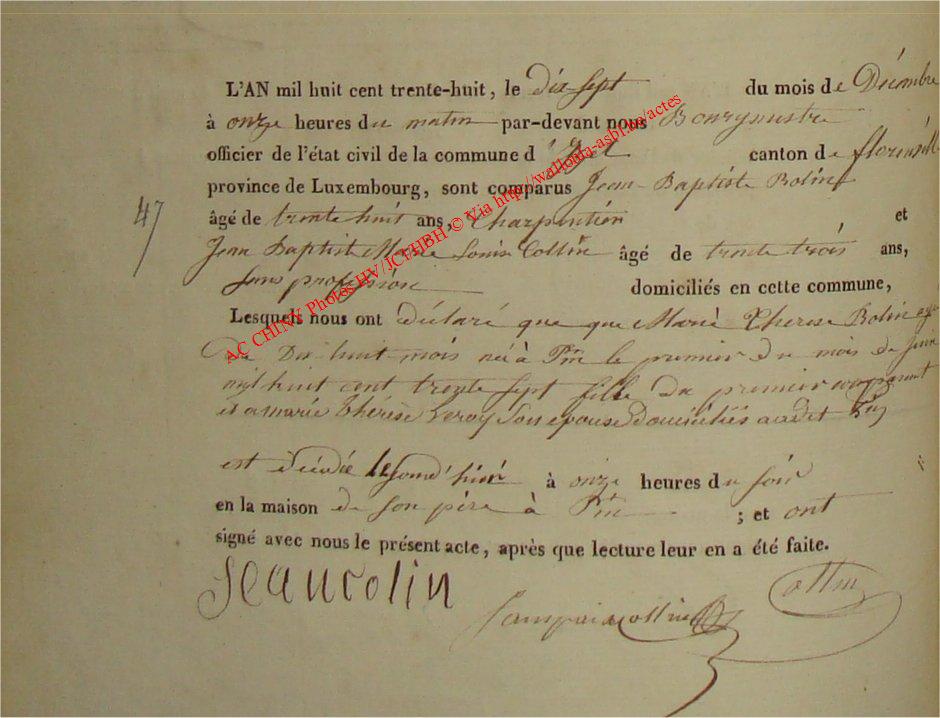 L'AN mil huit cent trente-huit, le dix sept du mois de Décembre
à onze heures du matin par-devant nous Bourgmestre
officier de l'état civil de la commune d' canton de florenville
province de Luxembourg, sont comparus Jean-Baptiste Bolin
47
âgé de trente huit ans, Charpentier et
Jean Baptiste Marie Louis Collin âgé de trente trois ans,
Sans profession domiciliés en cette commune,
Lesquels nous ont déclaré que que Marie Therese Bolin agée
De Dix huit mois née à Pin le premier du mois de Juin
mil huit cent trente sept fille du premier comparant
et a marie Thérèse Leroy Son epouse Domiciliés audit Pin
est décédée le jour d'hier à onze heures du soir
en la maison de son père à Pin ; et ont
signé avec nous le présent acte, après que lecture leur en a été faite.
Jean colin
collin
AC CHINY Photos HV/JCVHBH © Via http://wallonia-asbl.be/actes